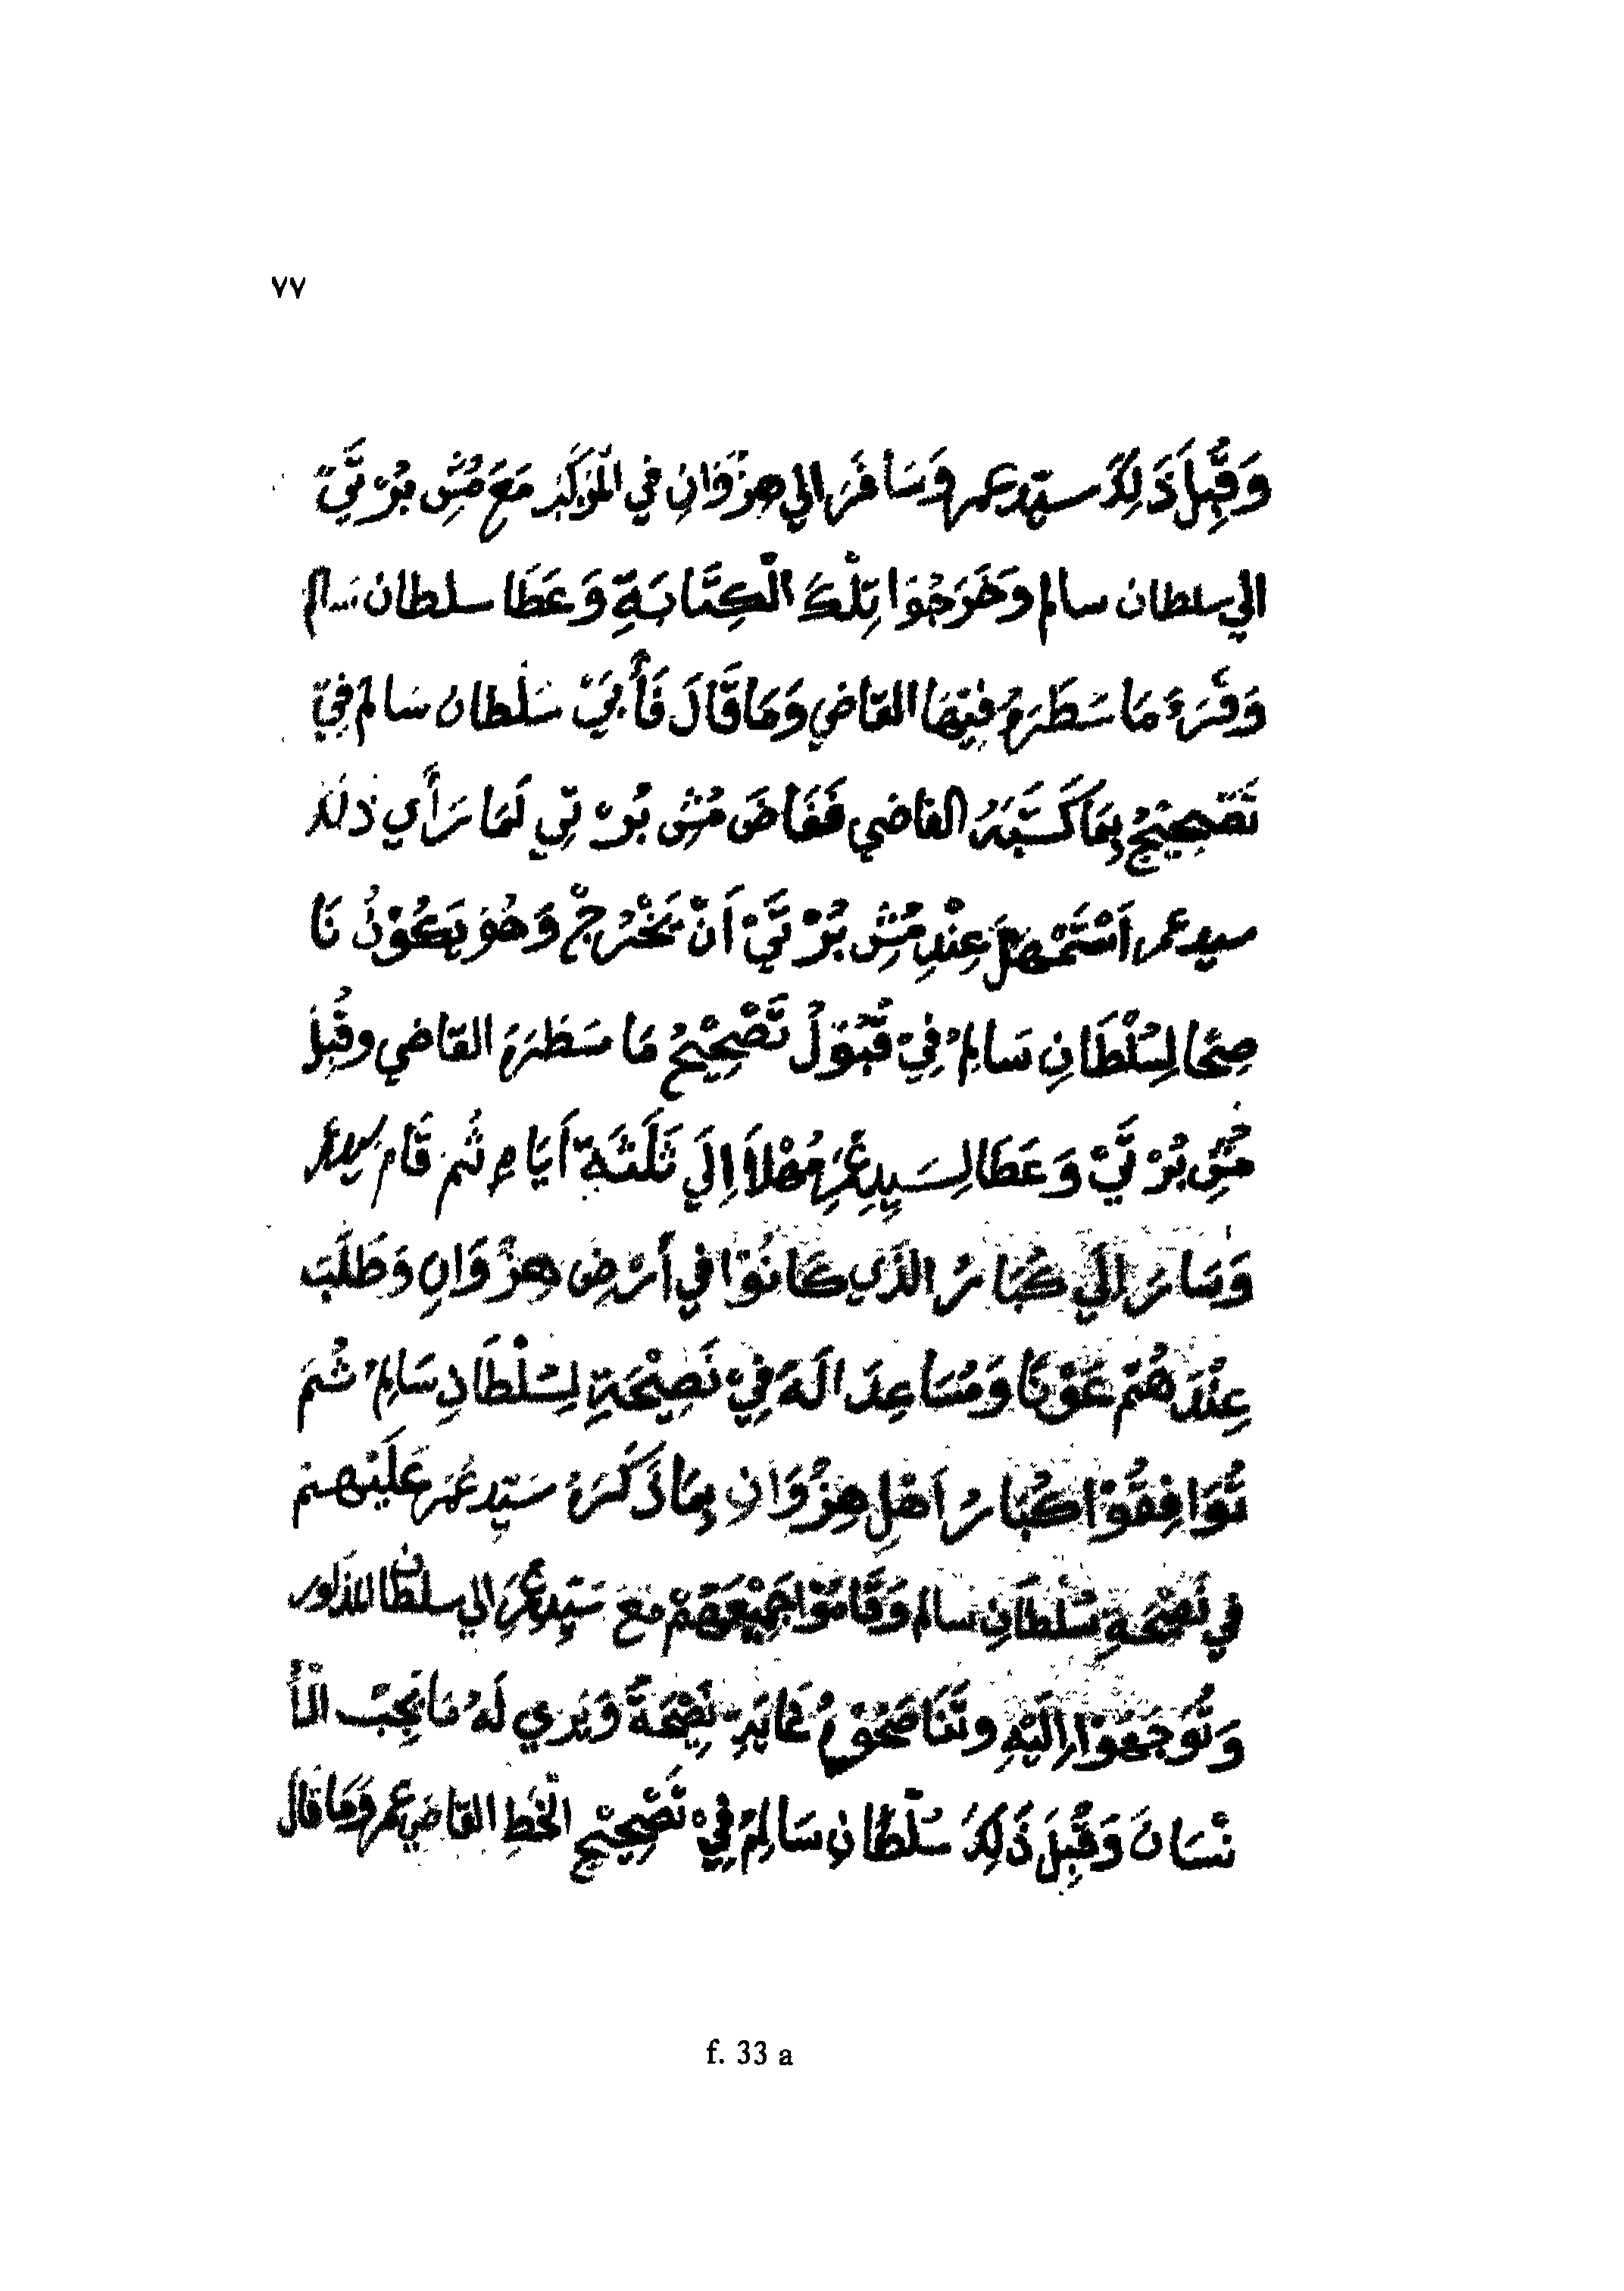 ٧٧
وَقَبِلَ ذَلِكَ سيّد عمر وَسَافَرَ الي هِزْوَانِ في الْمَرْكَبِ مَعَ مُشِ بُرْتَيْ
الي سلطان سالم وَخَرَجُوا تِلْكَ الْكِتَابَةِ وَعَطَا سلطان سَالم
وَقَرَءَ مَا سَطَرَهُ فِيْهَا القاضِي وَمَا قَالَ فَأَبَيْ سَلْطان سَالم فِيْ
تَصْحِيْحُ بِمَا كَتَبَهُ القاضي فَغَاضَ مُشِ بُرْتِي لَمَا رَأَي ذلَكَ
سيد عمر اَسْتَمْهَلَ عِنْدِ مُشِ بُرْتَيْ اَنْ يَخْرُجْ وَهُوَ يَكُوْنُ نَا
صِحًا لِسُلْطَانِ سَالِمْ فِيْ قُبُوْلُ تَصْحِيْحُ مَا سَطَرَهَ القاضي وقَبِلَ
مُشِ بُرْتَيْ وَعَطَا لِسَيِدِ عُمَرِ مُهْلاً اِلَي ثَلَثَةَ اَيَامٍ ثُم قَام سيد عمر
وَسَارَ اِلَي كُبَارُ الذَي كَانُوْا في أَرْضِ هِزْوَانِ وَطَلَبَ
عِنْدَهُمْ عَوْنًا وَمُسَاعِدَا لَهَ فِيْ نَصِيْحَةِ لِسُلْطَانِ سَالِمْ ثُمَ
تُوَافِقُوْا كُبَارُ اَهْلِ هِزْوَانِ بِمَا ذَكَرَهُ سَيّدِ عُمَرَ عَلَيْهِمْ
في نَصْحَةِ سُلْطَانِ سالم وَقَامُوْا جَمِيْعَهُمْ مَعَ سَيّدِ عُمَرَ الي سلطان المذكور
وَتُوَجَهُوْا اِلَيْهِ وتَنَاصَحُوْهُ غَايَةِ نَصْحَةً وَيَرَي لَهُ مَا يَجِبْ الْأَ
نْسَانَ وَقَبِلَ ذَلِكَ سُلْطَانِ سَالِمْ فِيْ تَصْحِيْحِ الْخَطِ القاضي عمر وَمَا قَالَ
f. 33 a